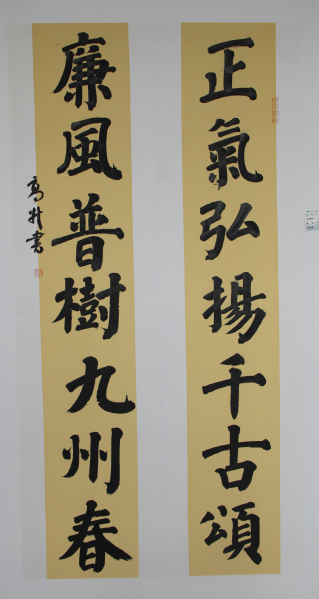 正氣弘揚千古頌
廉風普樹九州春
高升書